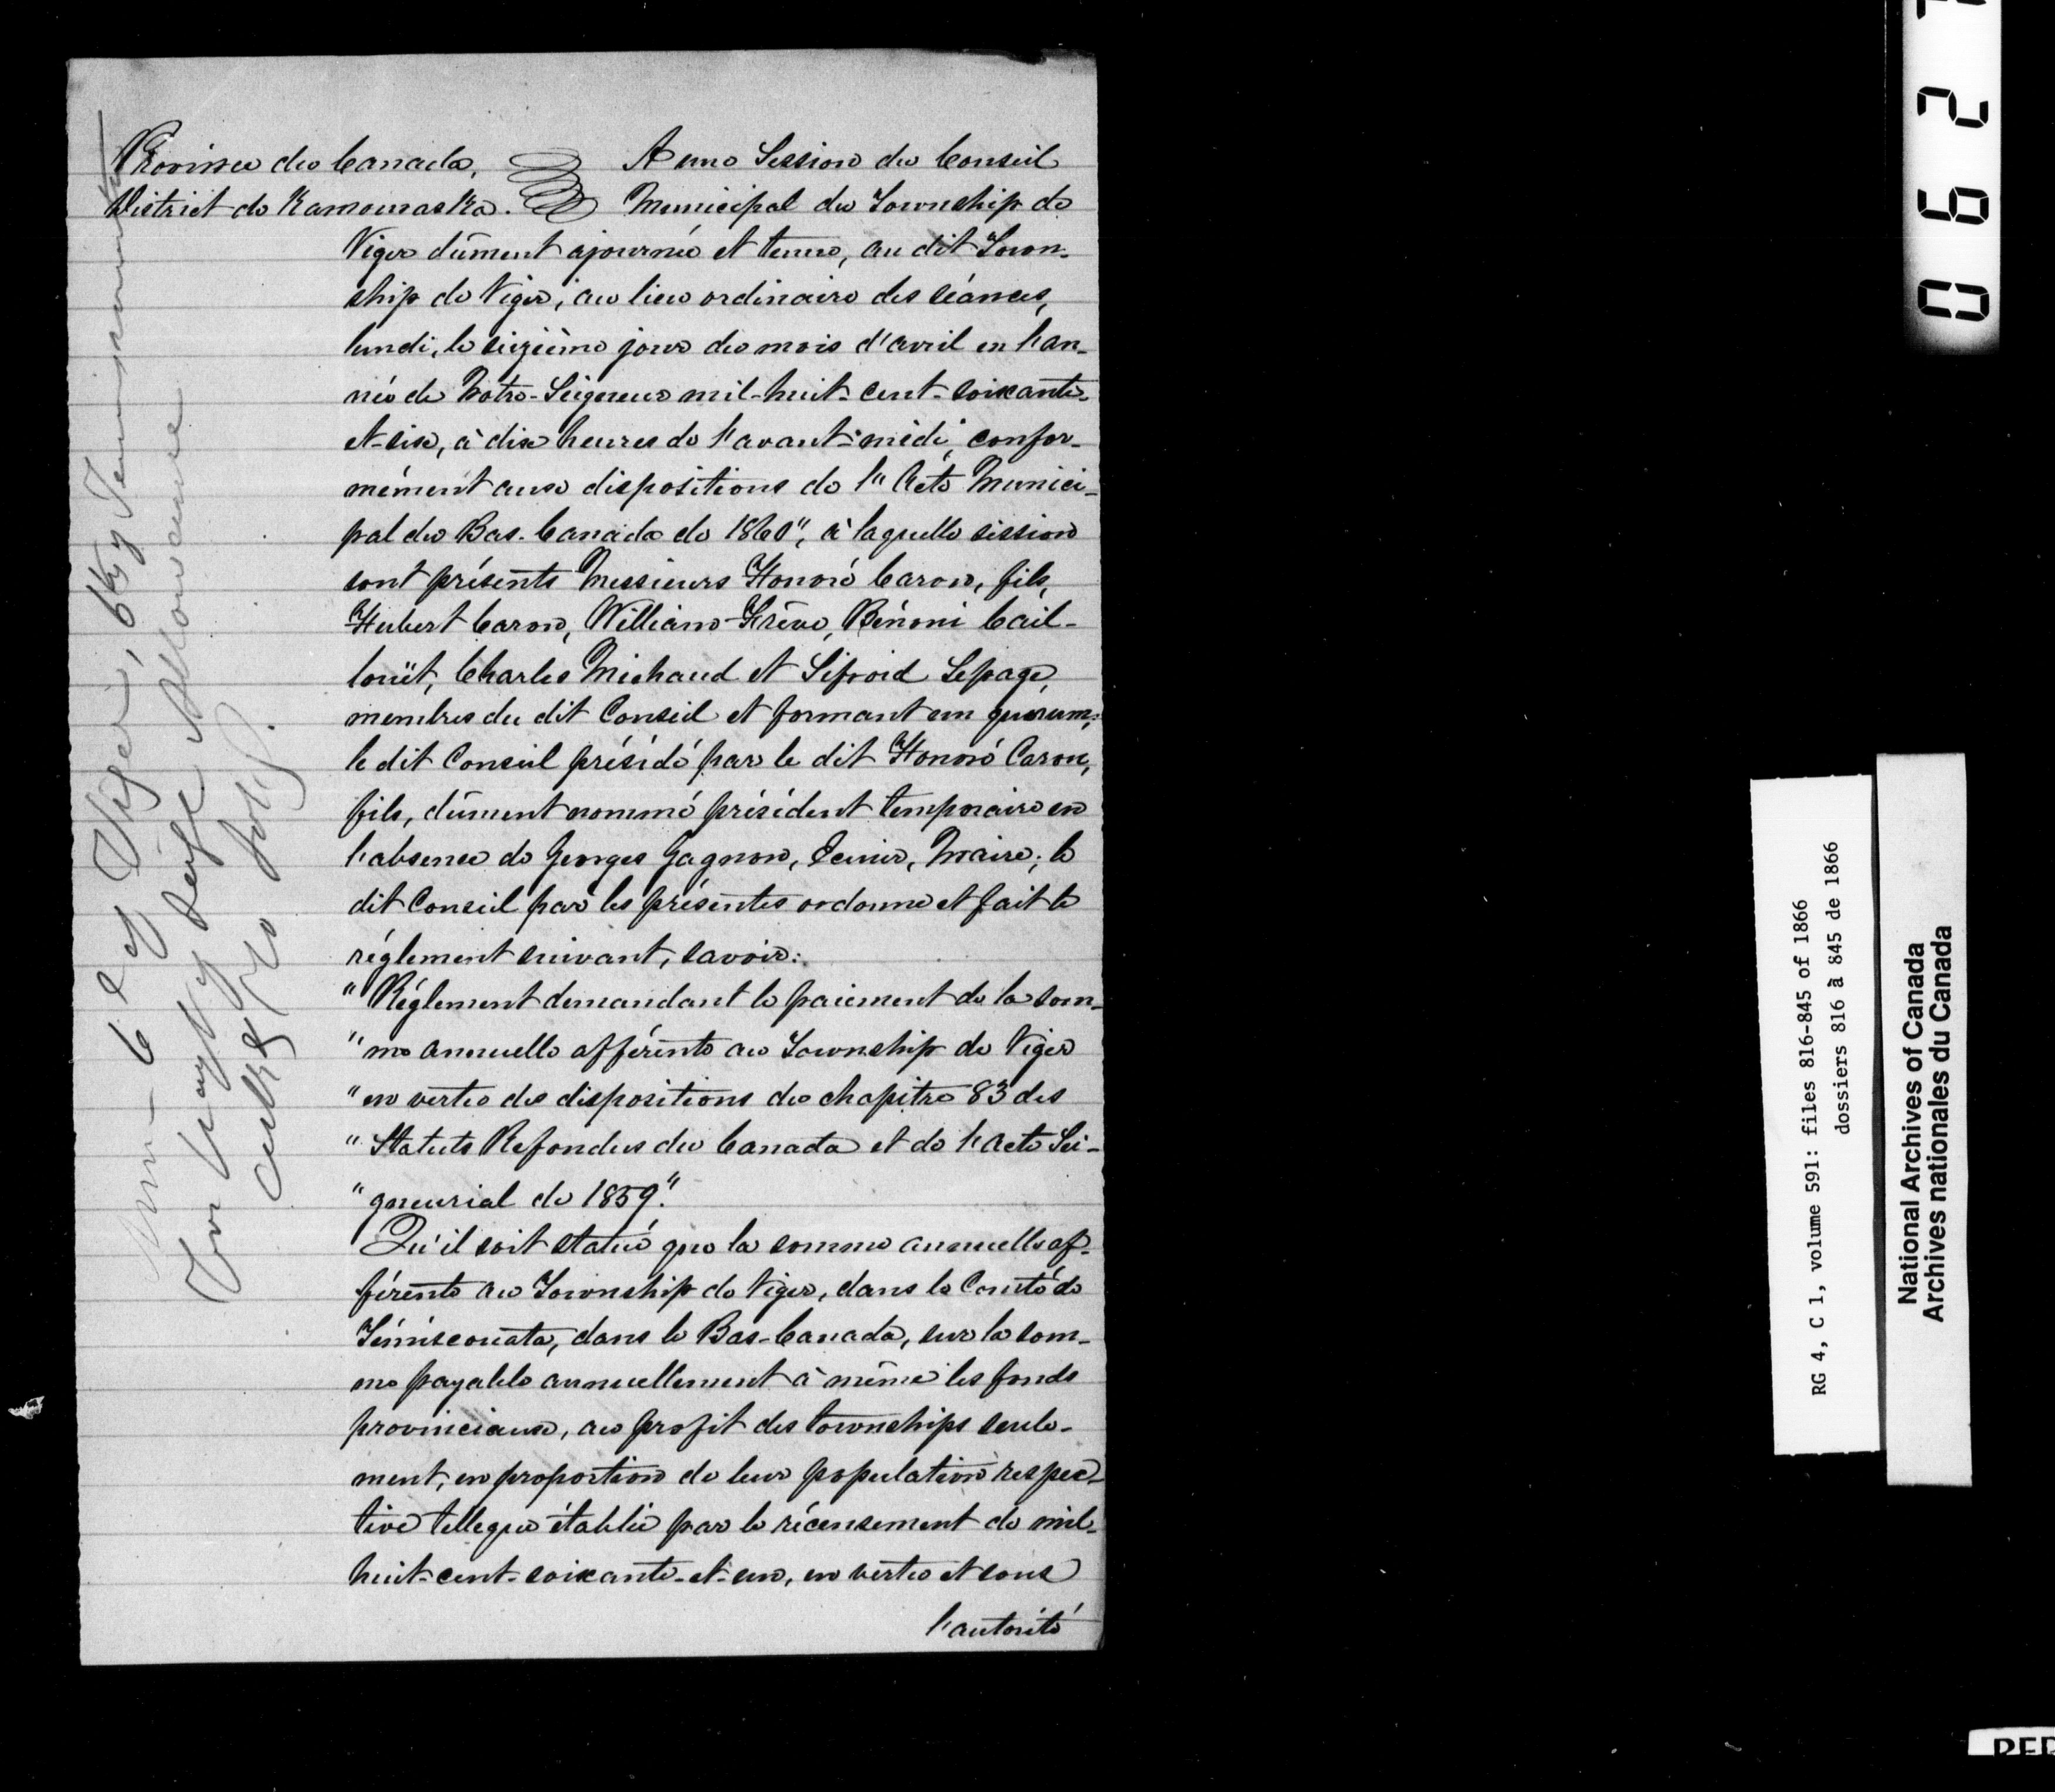 Province du Canada,
District de Kamouraska.
A une Session du Conseil
Municipal du Township de
Viger dûment ajournée et tenue, au dit Town-
ship de Viger, au lieu ordinaire des séances,
lundi, le seizième jour du mois d'avril en l'an-
née de Notre-Seigneur mil-huit-cent-soixante-
et-six, à dix heures de l'avant-midi, confor-
mément aux dispositions de l'"Acte Munici-
pal du Bas-Canada de 1860", à laquelle session
sont présents Messieurs Honoré Caron, fils,
Hubert Caron, William Grève, Bénoni Cail-
louët, Charles Michaud et Sifroid Lepage,
membres du dit Conseil et formant un quorum;
le dit Conseil présidé par le dit Honoré Caron,
fils, dûment nommé président temporaire en
l'absence de Georges Gagnon, Ecuier, Maire; le
dit Conseil par les présentes ordonne et fait le
réglement suivant, savoir:
"Réglement demandant le paiement de la som-
"me annuelle afférente au Township de Viger
"en vertu des dispositions du chapitre 83 des
"Statuts Refondus du Canada et de l'Acte Sei-
"gneurial de 1859."
Qu'il soit statué que la somme annuelle af-
férente au Township de Viger, dans le Comté de
Témiscouata, dans le Bas-Canada, sur la som-
me payable annuellement à même les fonds
provinciaux, au profit des townships seule-
ment, en proportion de leur population respec-
tive telle que établie par le récensement de mil-
huit-cent-soixante-et-un, en vertu et sous
l'autorité
of Viger, Cty Temiscouata
Seige
0627
RG 4, C 1, volume 591: files 816-845 of 1866
dossiers 816 à 845 de 1866
National Archives of Canada
Archives nationales du Canada